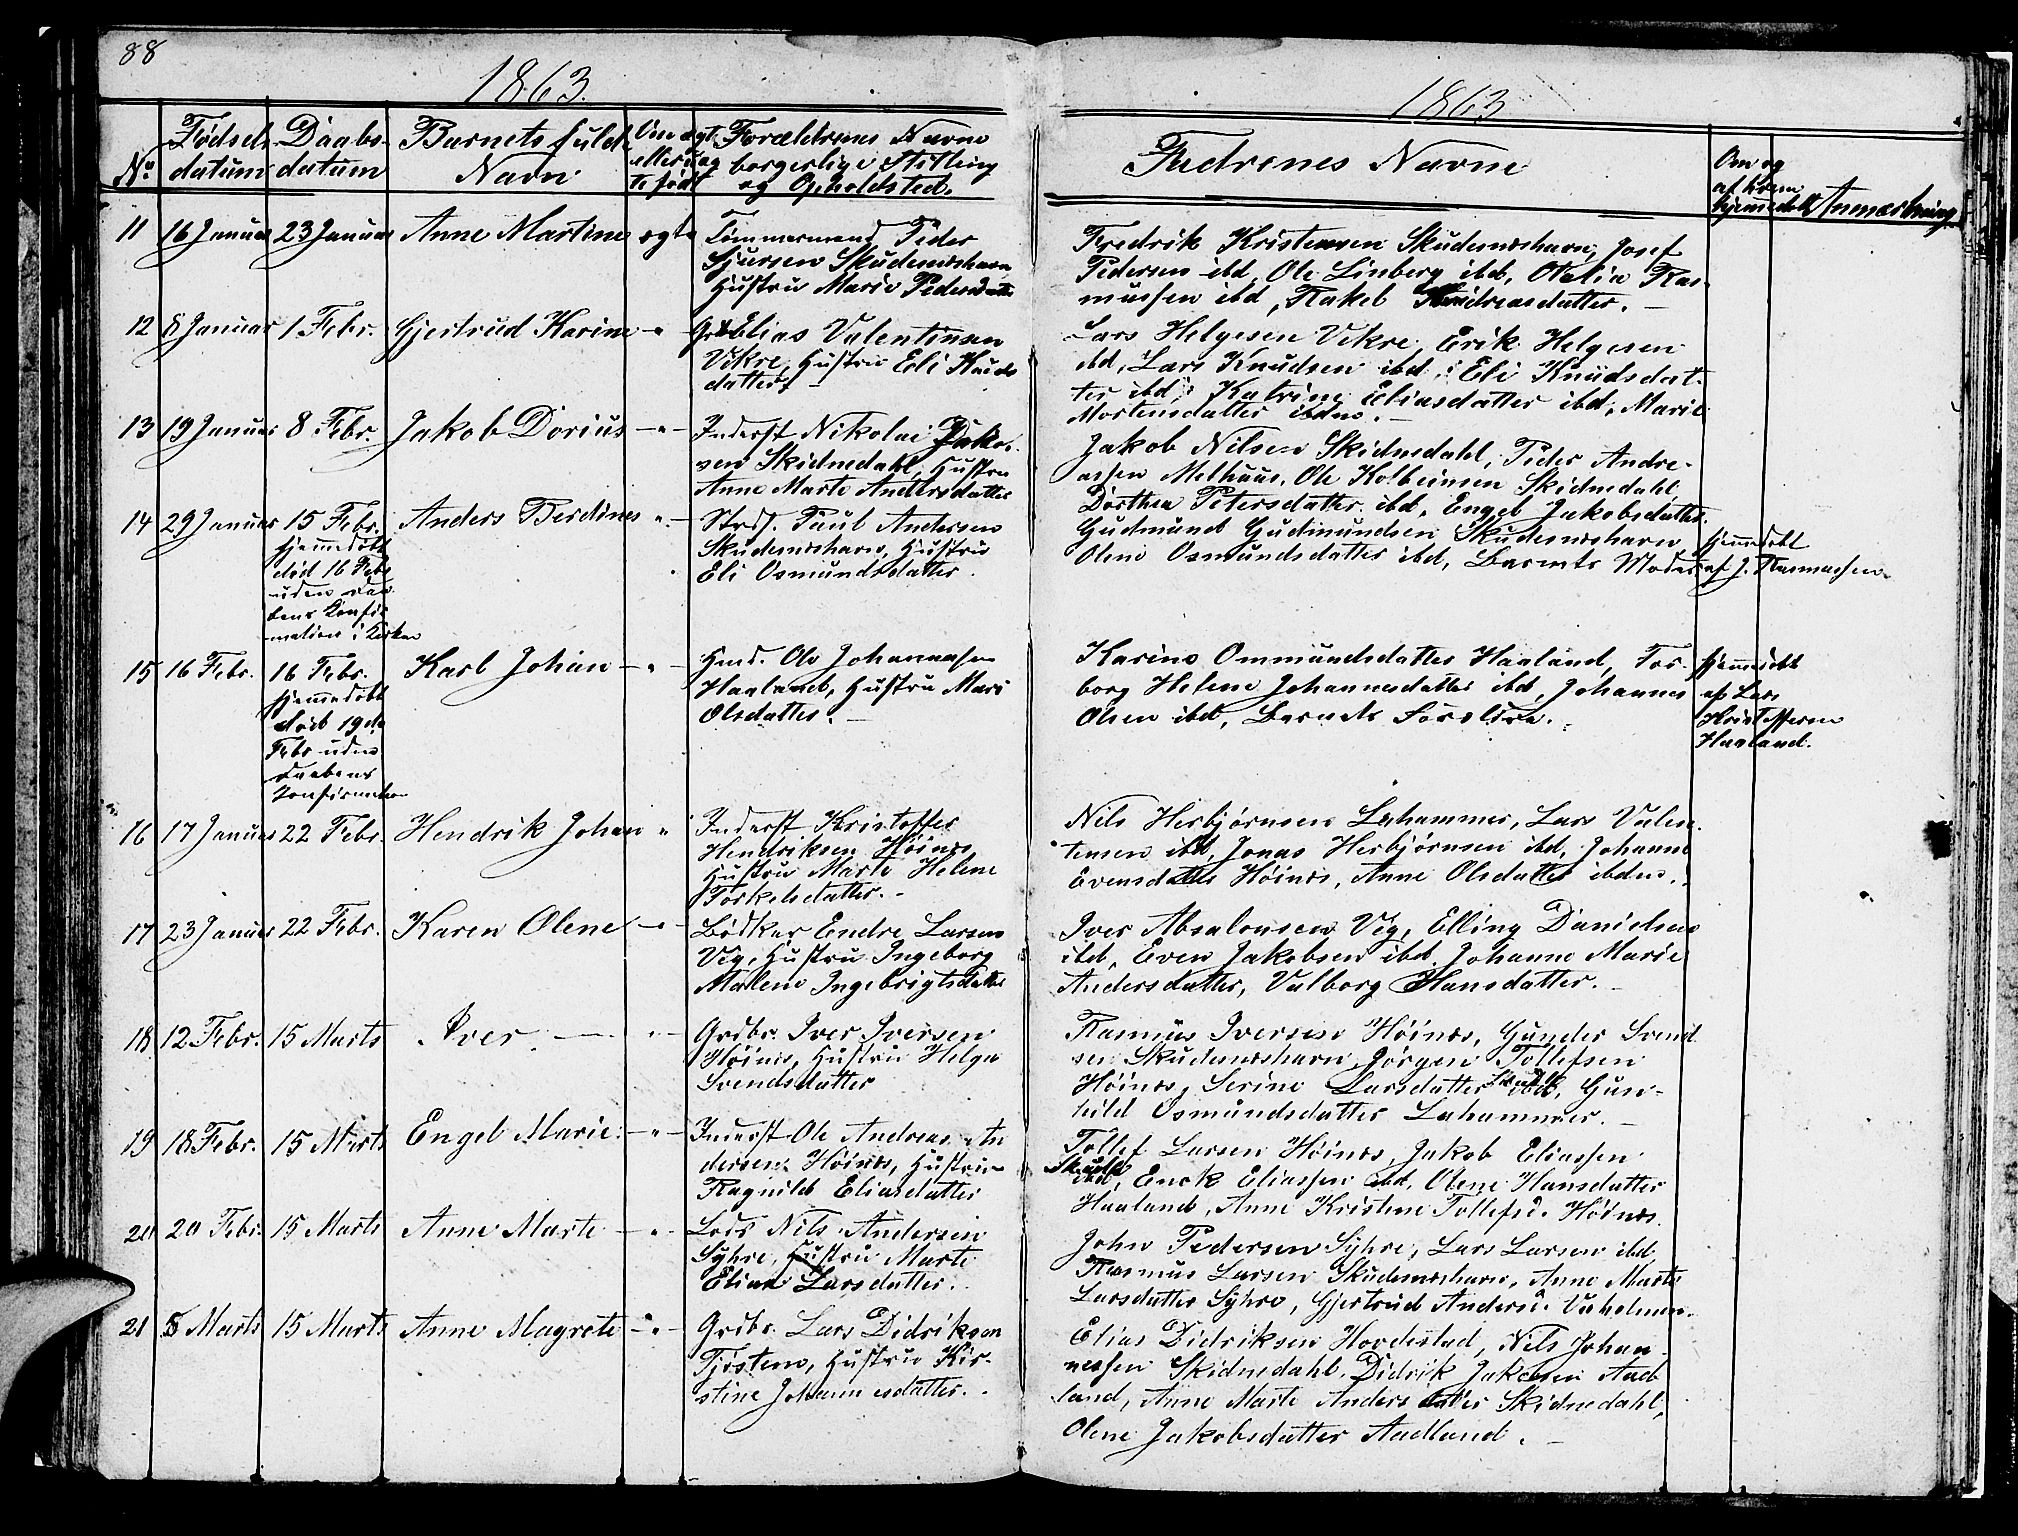 88
1863.
No
Fødsels
datum
Daabs
datum
Barnets fulde
Navn
Om ægte
eller uæg
te født
Forældrenes Navne
borgerlige Stilling
og Opholdsted.
11 16 Januar 23 Januar Anne Martine ægte
Tømmermand Peder
Sjursen Skudesneshavn
Hustru Marie Pedersdatter
12 8 Januar 1 Febr. Gjertrud Karine - " -
Grdbr Elias Valentinsen
Vikre, Hustru Eli Knuds
datter. -
13 19 Januar 8 Febr. Jakob Dorius - " -
Inderst Nikolai Jakob
sen Skidnedahl, Hustru
Anne Marte Andersdatter
14 29 Januar 15 Febr. Anders Berdines " -
Hjemmedøbt
død 16 Febr
uden Daa
bens Konfir
mation i Kirken
Strds. Paul Andersen
Skudesneshavn, Hustru
Eli Osmundsdatter.
15 16 Febr. 16 Febr. Karl Johan - " -
Hjemmedøbt
død 19de
Febr uden
Daabens
Konfirmation
Hmd. Ole Johannessen
Haaland, Hustru Mari
Olsdatter. -
16 17 Januar 22 Febr. Hendrik Johan "
Inderst Kristoffer
Hendriksen Høines
Hustru Marte Helene
Torkelsdatter. -
17 23 Januar 22 Febr. Karen Olene - " -
Bødker Endre Larsen
Vig, Hustru Ingeborg
Malene Ingebrigtsdatter
18 12 Febr. 15 Marts Iver. - "
Grdbr. Iver Iversen
Høines, Hustru Helga
Svendsdatter
19 18 Febr. 15 Marts Engel Marie. - " -
Inderst Ole Andreas An
dersen Høines, Hustru
Ragnild Eliasdatter
20 20 Febr. 15 Marts Anne Marte - " -
Lods Nils Andersen
Syhre, Hustru Marte
Eliane Larsdatter.
21 5 Marts 15 Marts Anne Magrete - " -
Grdbr. Lars Didriksen
Tjøsten, Hustru Kir-
stine Johannesdatter. -
1863
Fadrenes Navne
Om og
af hvem
hjemmedøbt
Anmærkning
Fredrik Kristensen Skudesneshavn, Josef
Pedersen ibd, Ole Linberg ibd, Otalia Ras-
mussen ibd, Rakel Andreasdatter. -
Lars Helgesen Vikre, Erik Helgesen
ibd, Lars Knudsen ibd, Eli Knudsdat-
ter ibd, Katrine Eliasdatter ibd, Marie
Mortensdatter ibdm. -
Jakob Nilsen Skidnedahl, Peder Andre-
assen Melhuus, Ole Kolbeinsen Skidnedahl,
Dorthea Petersdatter ibd, Engel Jakobsdatter.
Gudmund Gudmundsen Skudesneshavn
Olene Osmundsdatter ibd, Barnets Moder
Hjemmedøbt
af J. Rasmussen
Karine Ommundsdatter Haaland, Tor-
borg Helene Johannesdatter ibd, Johannes
Olsen ibd, Barnets Forældre.
Hjemmedøbt
af Lars
Kristoffersen
Haaland.
Nils Herbjørnsen Lahammer, Lars Valen
tinsen ibd, Jonas Herbjørnsen ibd, Johanne
Evensdatter Høines, Anne Olsdatter ibdm.
Iver Absalonsen Vig, Elling Danielsen
ibd, Even Jakobsen ibd, Johanne Marie
Andersdatter, Valborg Hansdatter. -
Rasmus Iversen Høines, Gunder Svend
sen Skudesneshavn, Jørgen Tollefsen
Høines, Serine Larsdatter ibd, Gun-
hild Osmundsdatter Lahammer. -
Tollef Larsen Høines, Jakob Eliassen
ibd, Enok Eliassen ibd, Olene Hansdatter
Haaland, Anne Kristine Tollefsd. Høines.
John Pedersen Syhre, Lars Larsen ibd,
Rasmus Larsen Skudesneshavn, Anne Marte
Larsdatter Syhre, Gjertrud Andersd. Vaholmen.
Elias Didriksen Hovdestad, Nils Johan-
nessen Skidnedahl, Didrik Jakobsen Aad
land, Anne Marte Andersdatter Skidnedahl,
Olene Jakobsdatter Aadland. -